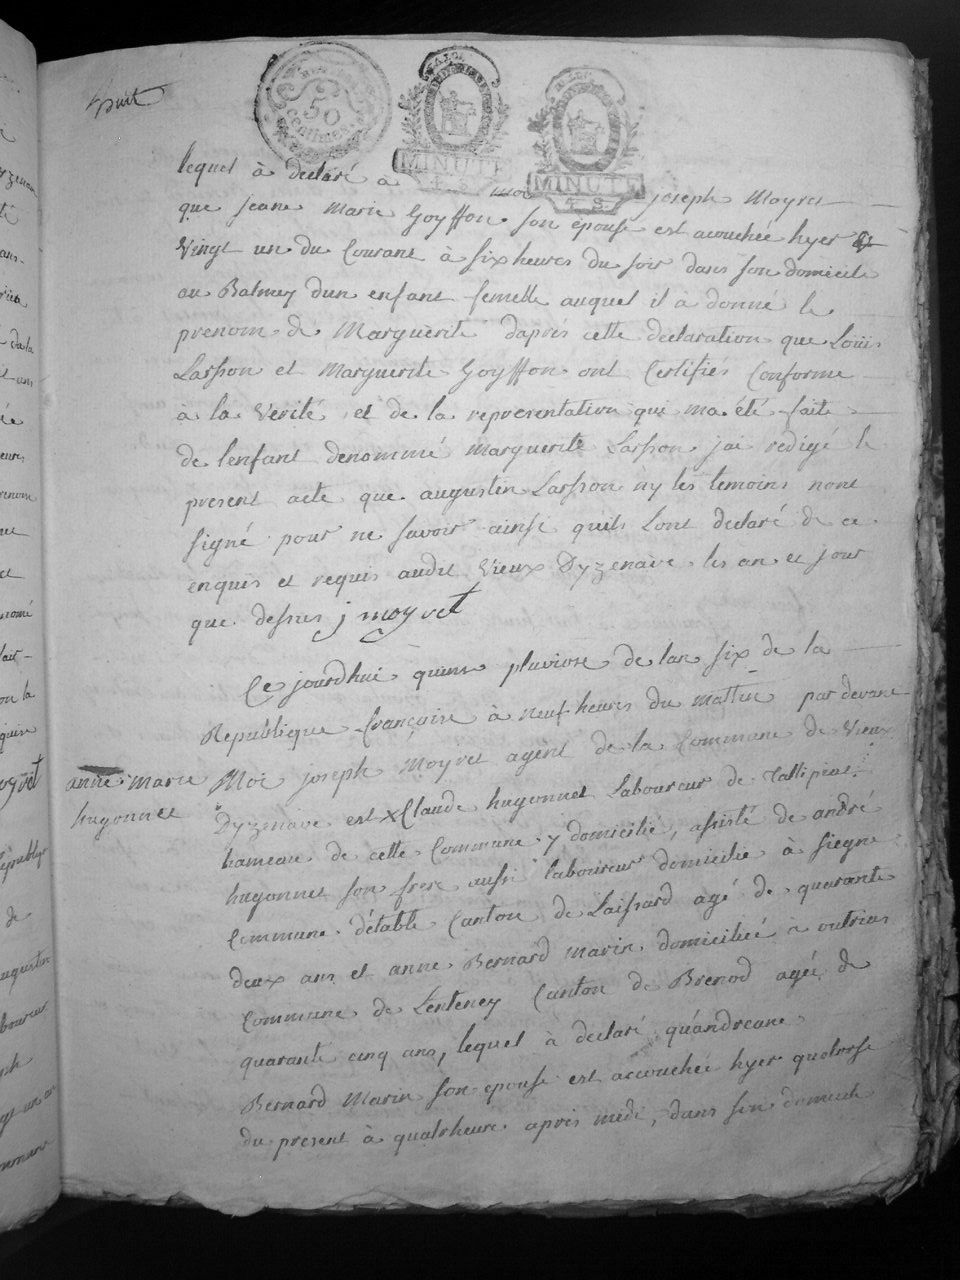 huit
50
Centimes
MINUTE
4 S
MINUTE
4 S
lequel à declaré à moi joseph Moyret
que jeane Marie Goyffon son épouse est acouchée hyer
vingt un du Courant à six heures du soir dans son domicile
au Balmey dun enfant femelle auquel il à donné le
prenom de Marguerite dapris cette declaration que Louis
Larsson et Marguerite Goyffon ont Certifiés Conforme
à la Verité, et de la representation qui ma été faite
de lenfant denommé Marguerite Larsson jai redigé le
present acte que augustin Larsson ny les temoins nont
signé pour ne savoir ainsi quils Lont declaré de ce
enquis et requis audit Vieux Dyzenave les an et jour
que dessus j moyret
Ce jourdhui quinse pluviose de lan six de la
Republique françaire à neuf heures du mattin par devant
anne Marie
hugonnet
Moi joseph Moyret agent de la Commune de Vieux
Dyzenave est x Claude hugonnet Laboureur de
hameau de cette Commune y domicilié, assisté de andré
hugonnet son frere aussi laboureur domicilié à Siegne
Commune détable Canton de Laissard agé de quarante
deux ans et anne Bernard Marin domiciliée à outrias
Commune de Lenteney Canton de Brenod agée de
quarante cinq ans, lequel à declaré quandreane
Bernard Marin son epouse est accouchée hyer quatorse
du present à quatrheure après midi, dans son domicile